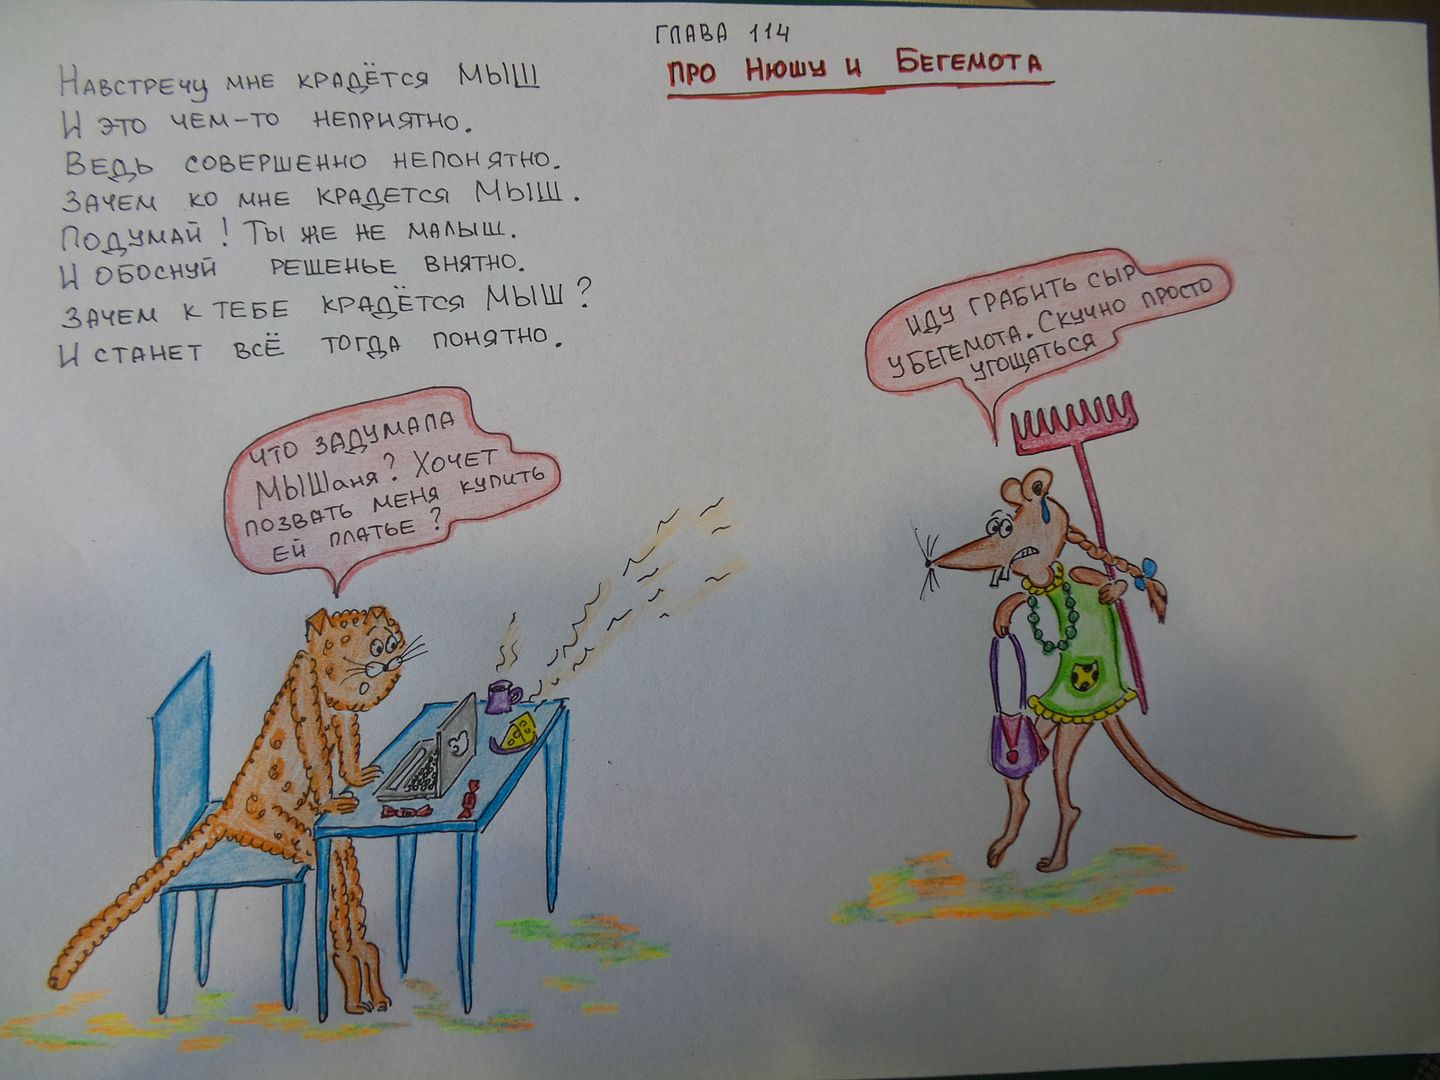 ГЛАВА 114
ПРО НЮШУ И БЕГЕМОТА
НАВСТРЕЧУ МНЕ КРАДЁТСЯ МЫШ
И ЭТО ЧЕМ-ТО НЕПРИЯТНО.
ВЕДЬ СОВЕРШЕННО НЕПОНЯТНО.
ЗАЧЕМ КО МНЕ КРАДЕТСЯ МЫШ.
ПОДУМАЙ! ТЫ ЖЕ НЕ МАЛЫШ.
И ОБОСНУЙ РЕШЕНЬЕ ВНЯТНО.
ЗАЧЕМ К ТЕБЕ КРАДЁТСЯ МЫШ?
И СТАНЕТ ВСЁ ТОГДА ПОНЯТНО.
ИДУ ГРАБИТЬ СЫР
У БЕГЕМОТА. СКУЧНО ПРОСТО
УГОЩАТЬСЯ
ЧТО ЗАДУМАЛА
МЫШаня? ХОЧЕТ
ПОЗВАТЬ МЕНЯ КУПИТЬ
ЕЙ ПЛАТЬЕ?